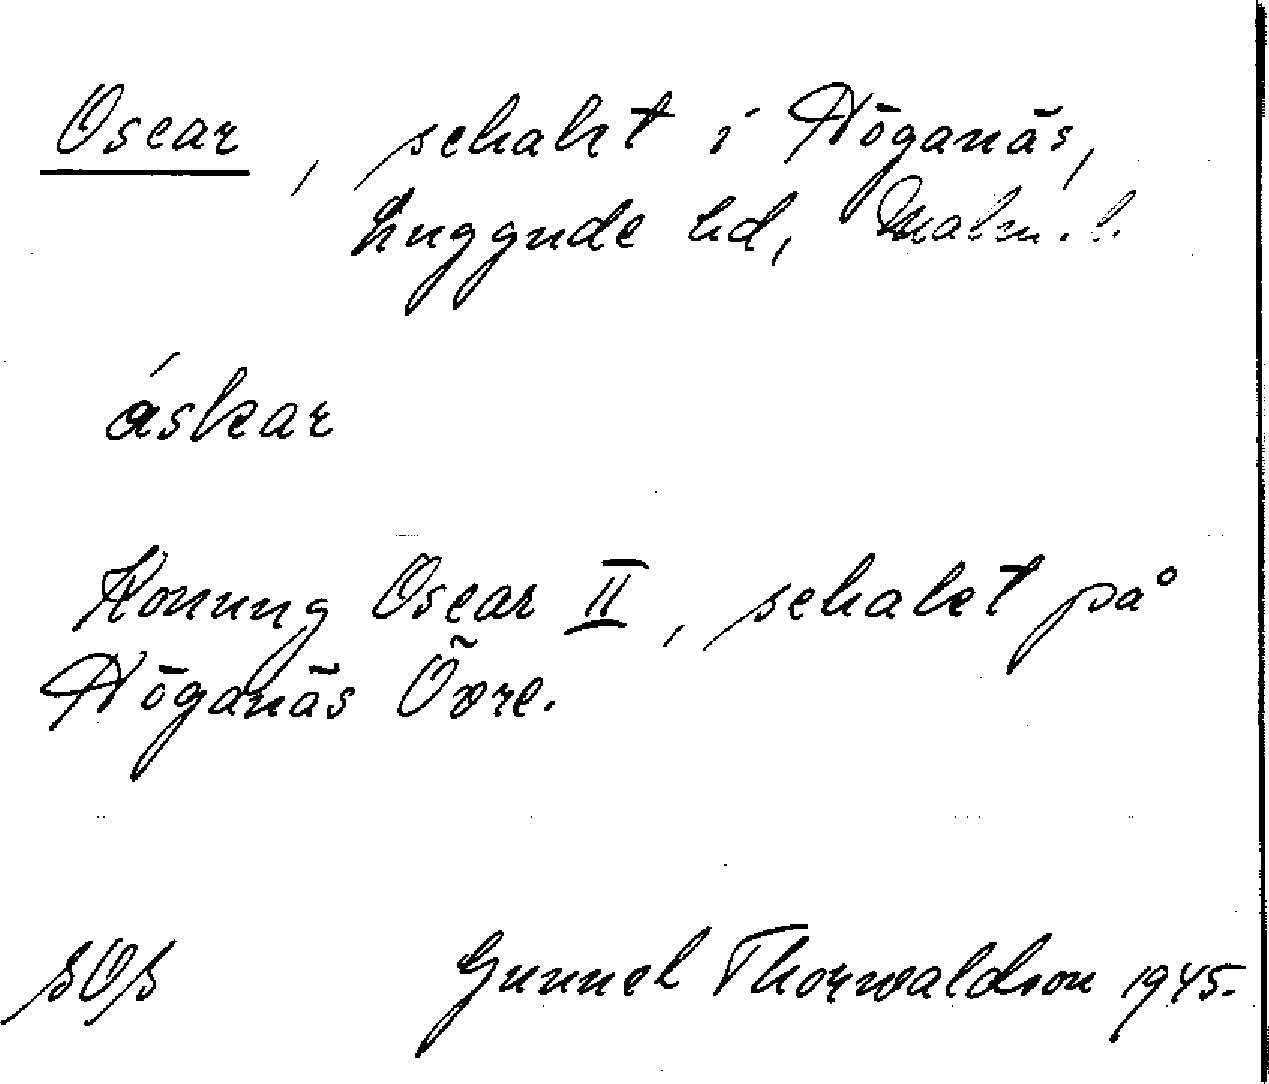 Oscar, schakt i Höganäs,
Luggude hd, Malm. l.
áskar
Konung Oscar II, schakt på
Höganäs Övre.
Gunnel Thorwaldson 1945.